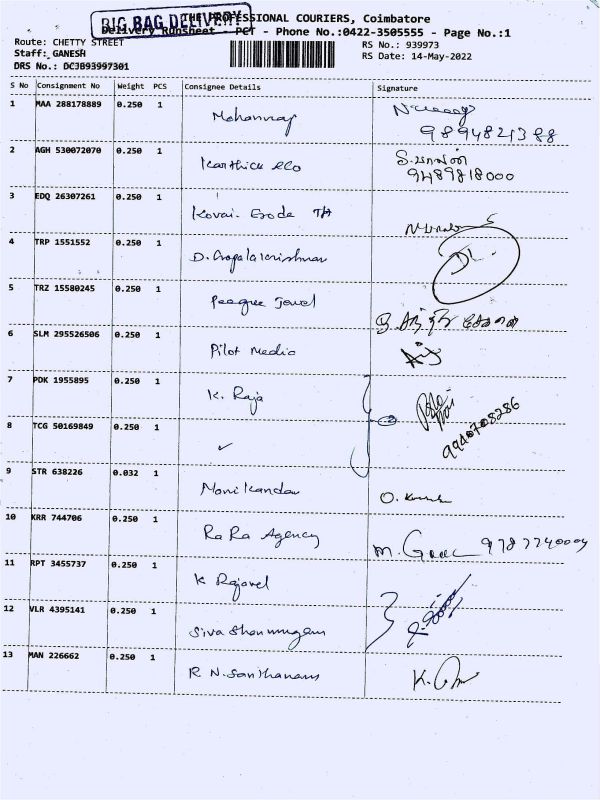 BIG BAG DELIVERY
THE PROFESSIONAL COURIERS, Coimbatore
Delivery Runsheet - PCT - Phone No.:0422-3505555 - Page No.:1
Route: CHETTY STREET
RS No.: 939973
Staff: GANESH
RS Date: 14-May-2022
DRS No.: DCJB93997301
S No Consignment No Weight PCS Consignee Details Signature
1 MAA 288178889 0.250 1 Mohanraj
9894821388
2 AGH 530072070 0.250 1 Karthick
9489818000
3 EDQ 26307261 0.250 1 Kovai. Erode
4 TRP 1551552 0.250 1 D. Gopalakrishnan
5 TRZ 15580245 0.250 1 Peegree Jewel
6 SLM 295526506 0.250 1 Pilot Media
7 PDK 1955895 0.250 1 K. Raja
9940708286
8 TCG 50169849 0.250 1 ✓
9 STR 638226 0.032 1 Manikandan
10 KRR 744706 0.250 1 Ra Ra Agency
9787740004
11 RPT 3455737 0.250 1 K Rajavel
12 VLR 4395141 0.250 1 Siva Shanmugam
13 MAN 226662 0.250 1 R N. Santhanam